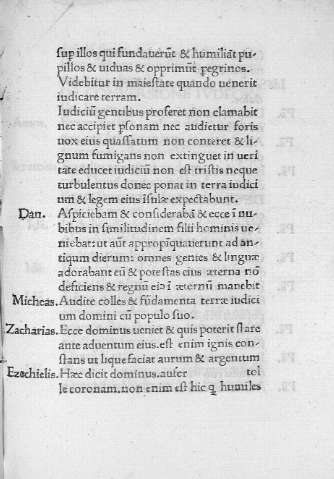 sup illos qui fundauerūt & humiliāt pu-
pillos & uiduas & opprimūt pegrinos.
Videbitur in maiestate quando uenerit
iudicare terram.
Iudiciū gentibus proferet non clamabit
nec accipiet psonam nec audietur foris
uox eius quassatum non conteret & li-
gnum fumigans non extinguet in ueri
tate educet iudiciū non est tristis neque
turbulentus donec ponat in terra iudici
um & legem eius isulæ expectabunt.
Dan. Aspiciebam & considerabā & ecce ī nu-
bibus in similitudinem filii hominis ue-
niebat: ut aūt appropīquauerunt ad an-
tiqum dierum: omnes gentes & linguæ
adorabant eū & potestas eius æterna nō
deficiens & regnū ei ī æternū manebit
Micheas. Audite colles & fūdamenta terræ iudici
um domini cū populo suo.
Zacharias. Ecce dominus ueniet & quis poterit stare
ante aduentum eius. est enim ignis con-
stans ut lique faciat aurum & argentum
Ezechielis. Hæc dicit dominus. aufer tol
le coronam. non enim est hic q humiles